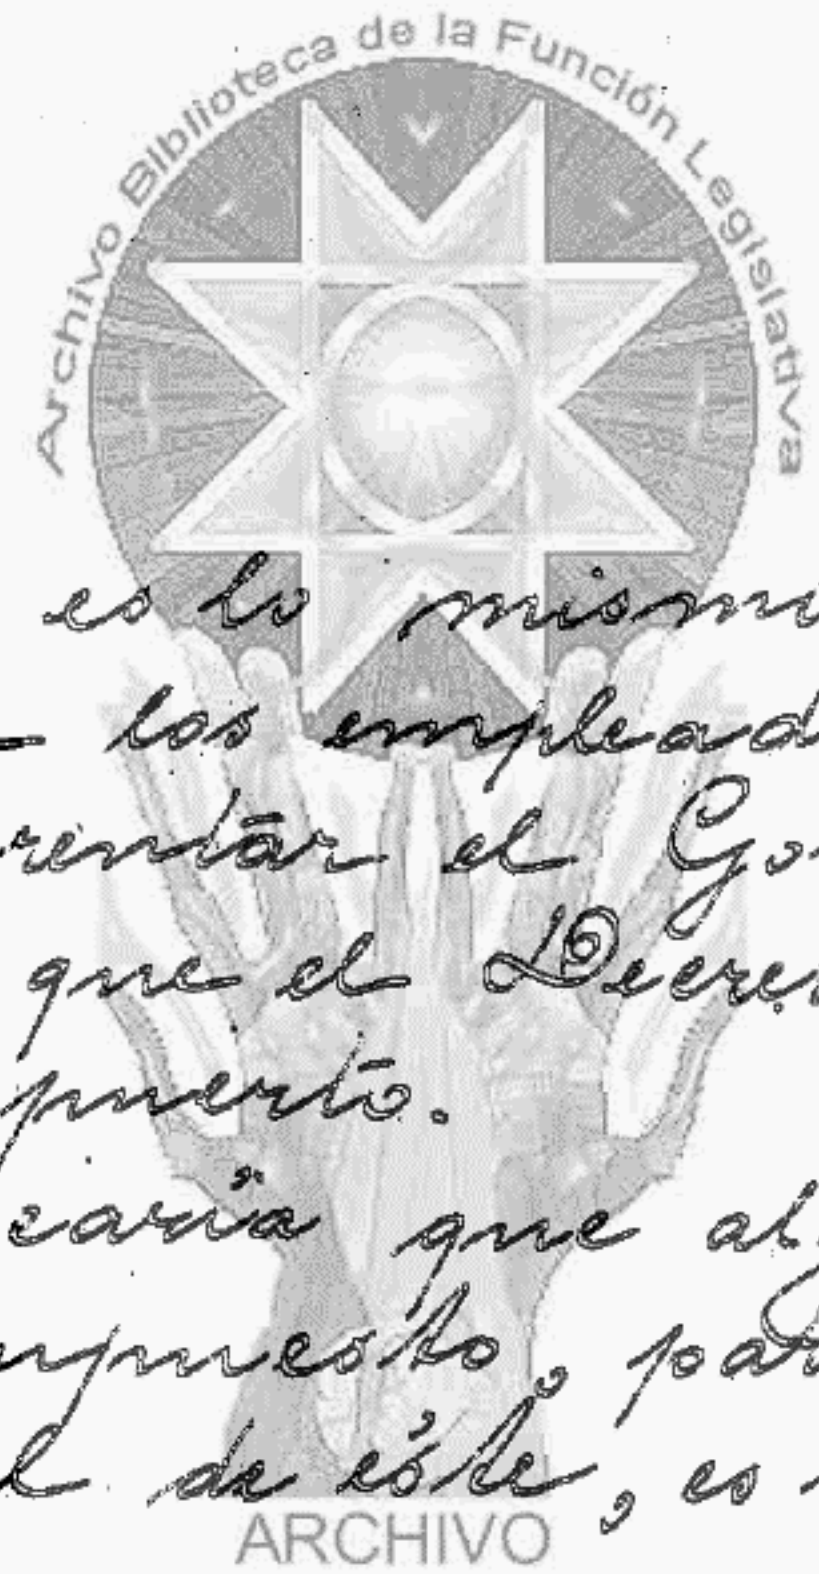 Archivo Biblioteca de la Función Legislativa
es lo mismo
los emplead
rentar el Go
que el Decre
puerto.
caria que al
puesto, par
l de éste, es
ARCHIVO